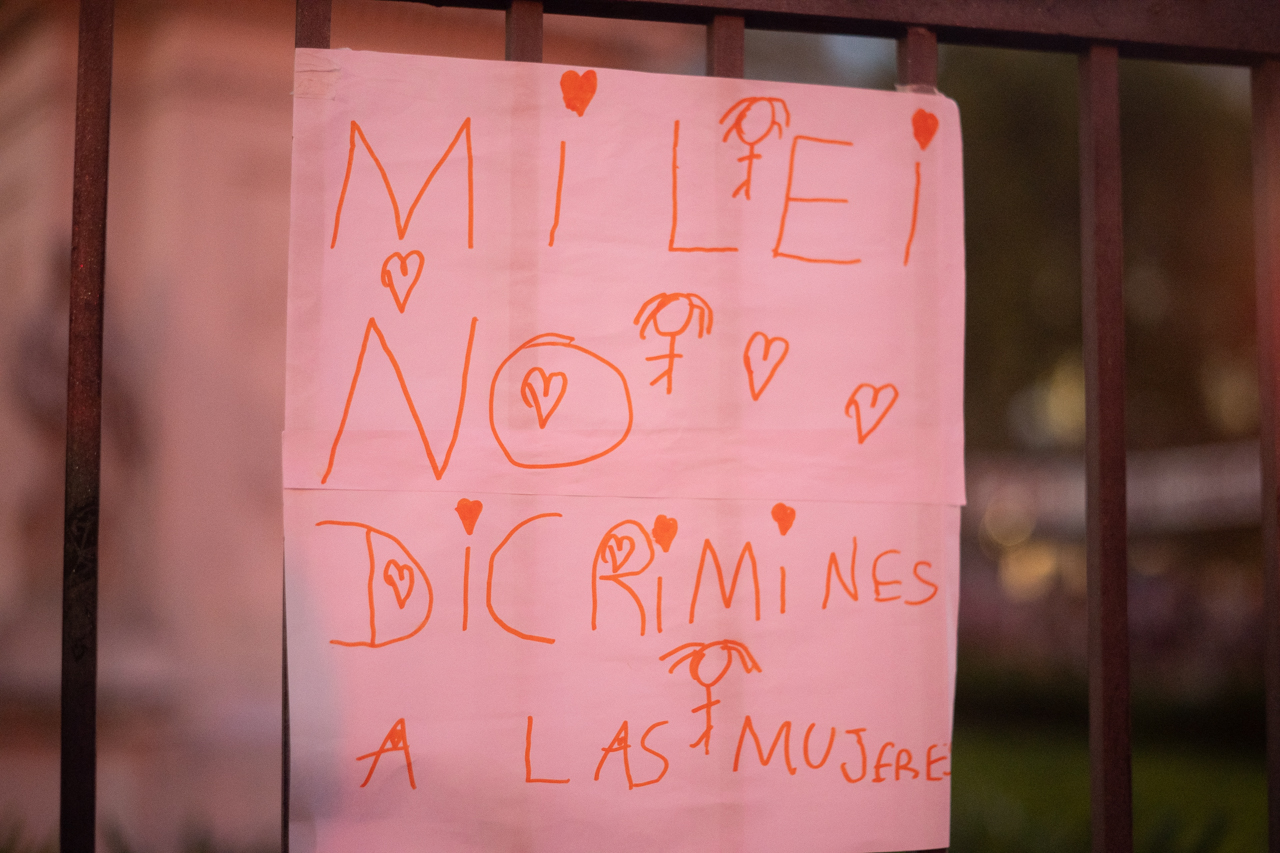 MiLEi
NO
DiCRiMiNES
A LAS MUJERES